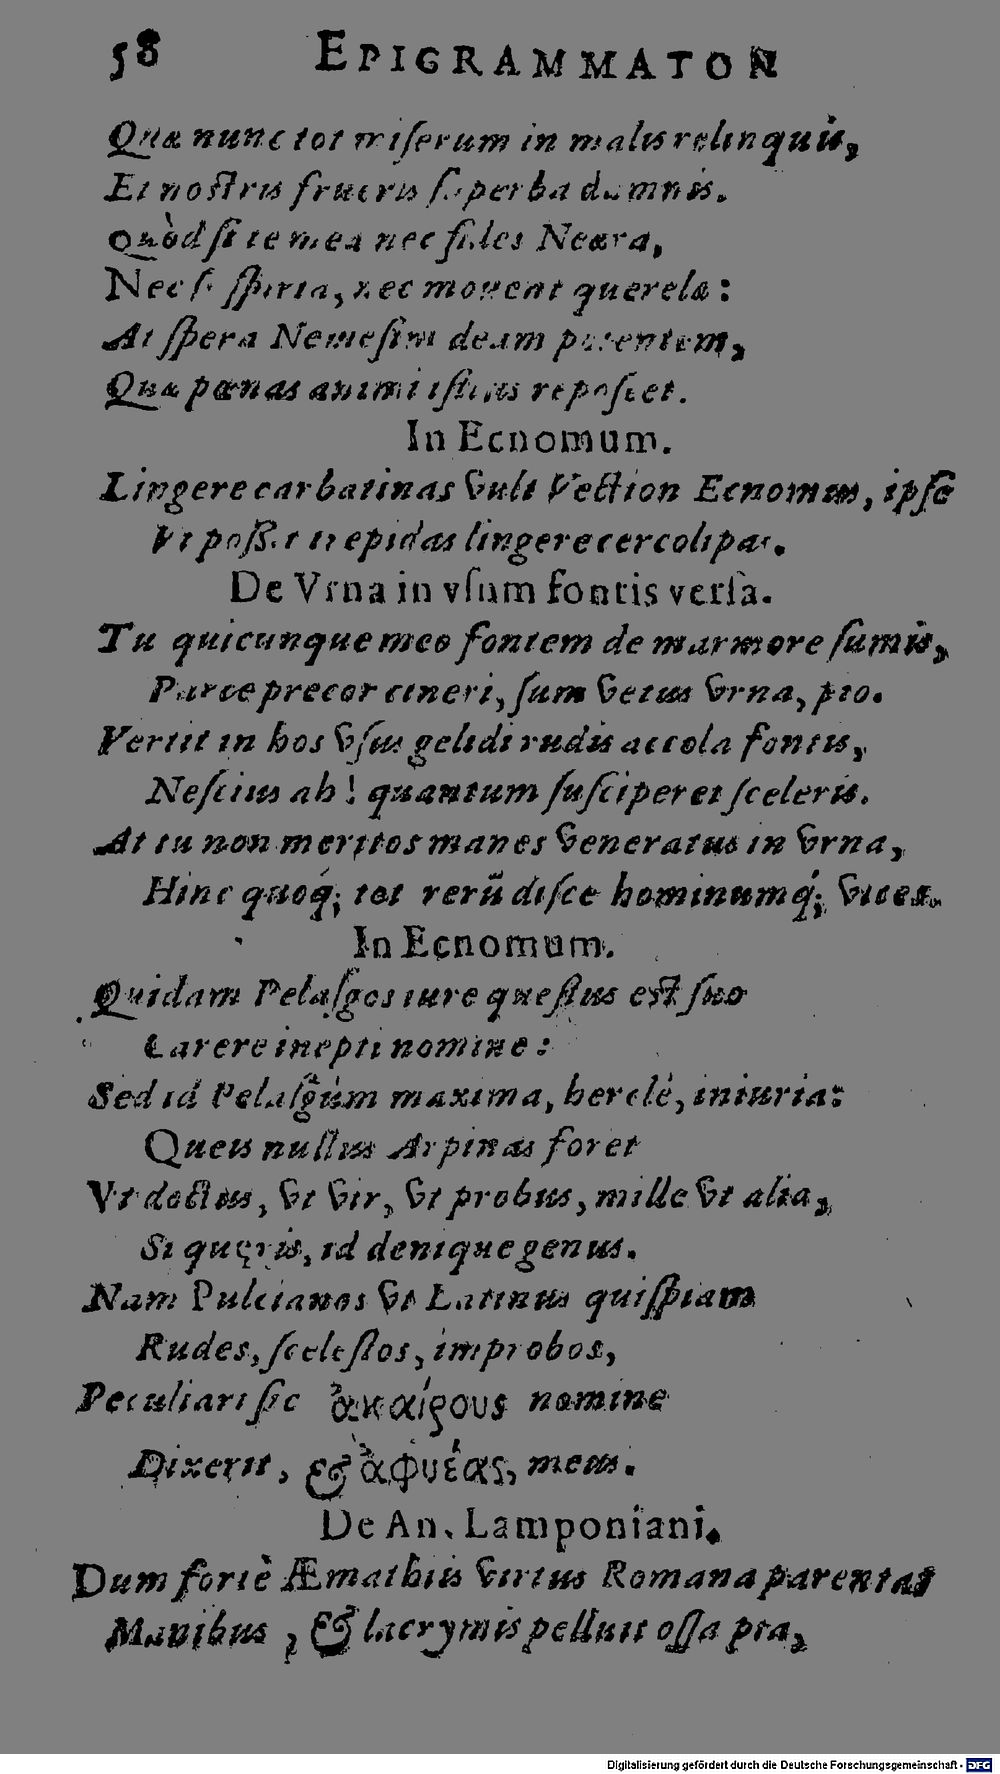 58 EPIGRAMMATON
Quæ nunc tot miſerum in malis relinquis,
Et noſtris frueris ſuperba damnis.
Quòd ſi te mea nec fides Neæra,
Nec ſuſpiria, nec mouent querelæ:
At ſpera Nemeſim deam potentem,
Quæ pœnas animi iſtius repoſcet.
In Ecnomum.
Lingere carbatinas vult Vection Ecnomus, ipſe
Vt poſſit trepidas lingere cercolipas.
De Vrna in vſum fontis verſa.
Tu quicunque meo fontem de marmore ſumis,
Parce precor cineri, ſum vetus vrna, pio.
Vertit in hos vſus gelidi rudis accola fontis,
Neſcius ah! quantum ſuſciperet ſceleris.
At tu non meritos manes veneratus in vrna,
Hinc quoq́; tot rerũ diſce hominumq́; vices.
In Ecnomum.
Quidam Pelaſgos iure queſtus eſt ſuo
Carere inepti nomine:
Sed id Pelaſgûm maxima, herclè, iniuria:
Queis nullus Arpinas foret
Vt doctus, vt vir, vt probus, mille vt alia,
Si quęris, id denique genus.
Nam Pulcianos vt Latinus quiſpiam
Rudes, ſceleſtos, improbos,
Peculiari ſic ἀκαίρους nomine
Dixerit, & ἀφυέας, meus.
De An. Lamponiani.
Dum fortè Æmathiis virtus Romana parentat
Manibus, & lacrymis pelluit oſſa pia,
Digitalisierung gefördert durch die Deutsche Forschungsgemeinschaft - DFG